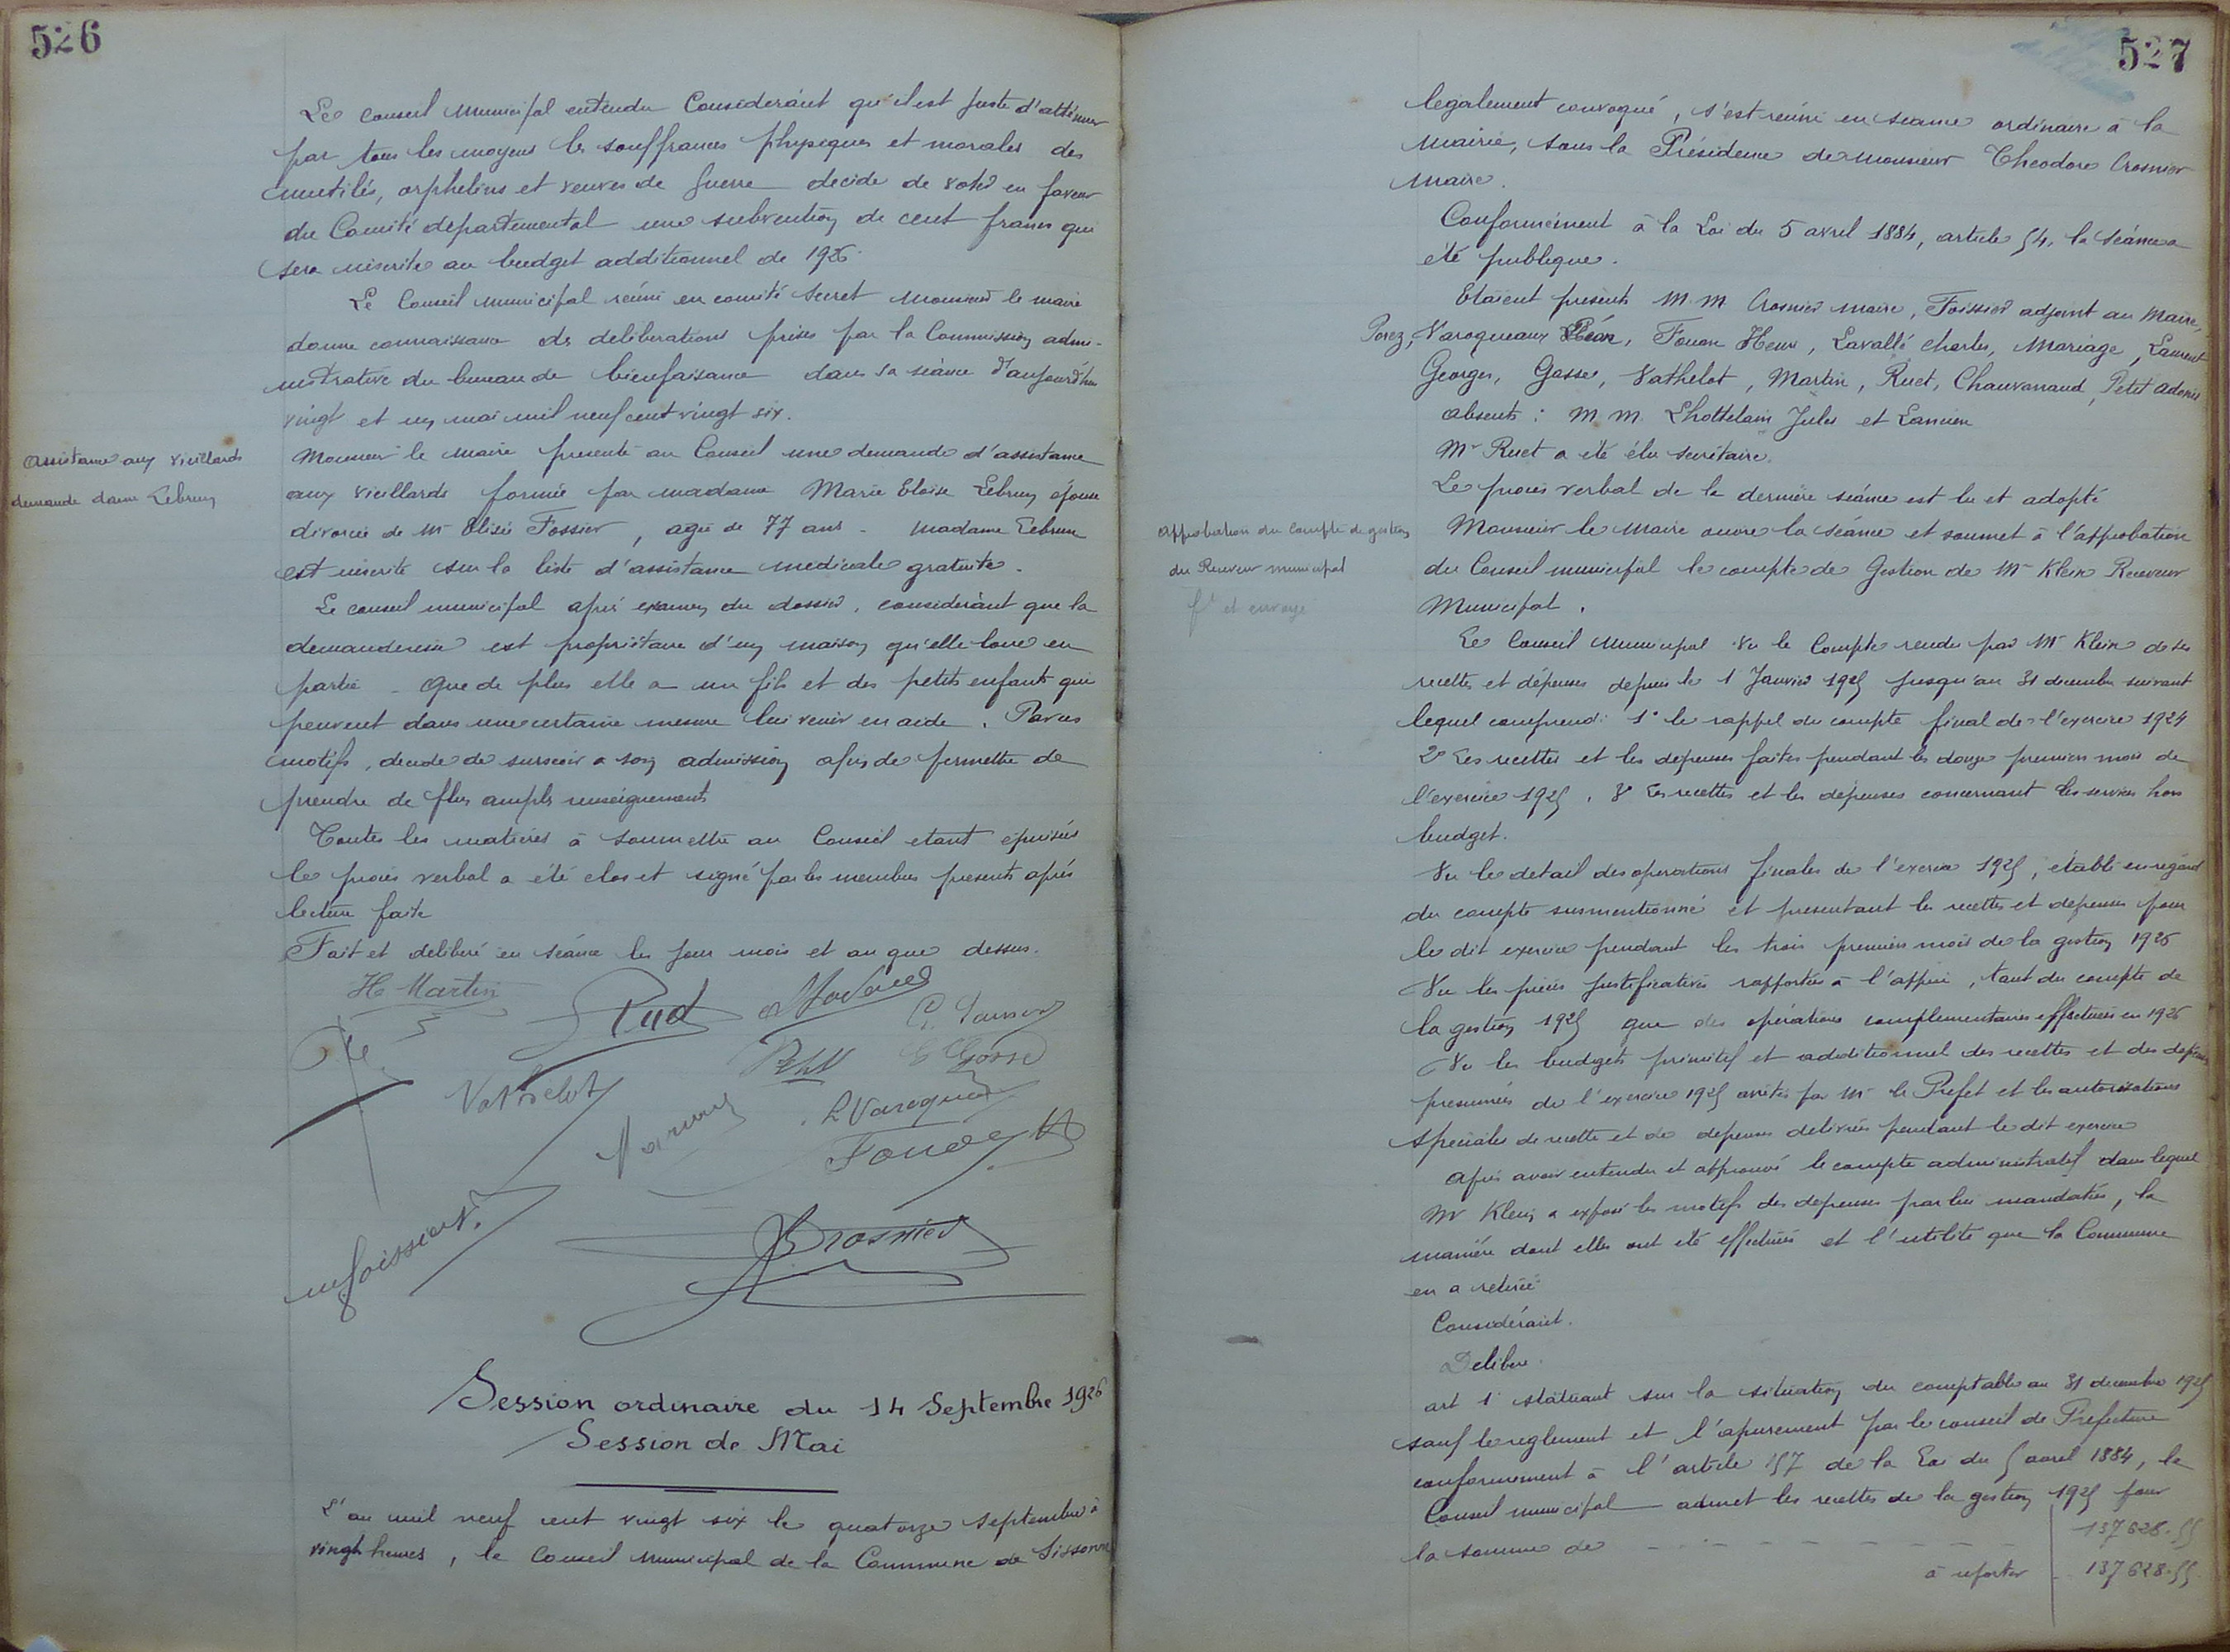 526
Le conseil municipal entendu Considérant qu'il est juste d'atténuer
par tous les moyens les souffrances physiques et morales des
mutilés, orphelins et veuves de guerre decide de voter en faveur
du Comité departemental une subvention de cent francs qui
sera inscrite au budget additionnel de 1926.
Le Conseil municipal réuni en comité secret Monsieur le maire
donne connaissance des deliberations prises par la Commission admi-
nistrative du bureau de bienfaisance dans sa séance d'aujourd'hui
vingt et un mai mil neuf cent vingt six.
Assistance aux vieillards
demande dame Lebrun
Monsieur le maire presente au Conseil une demande d'assistance
aux vieillards formée par madame Marie Eloïse Lebrun épouse
divorcée de Mr Elisée Fossier, agée de 77 ans - madame Lebrun
est inscrite sur la liste d'assistance medicale gratuite.
Le conseil municipal après examen du dossier, considérant que la
demanderesse est propriétaire d'un maison qu'elle loue en
partie - Que de plus elle a un fils et des petits enfants qui
peuvent dans une certaine mesure lui venir en aide. Par ces
motifs, decide de surseoir a son admission afin de permettre de
prendre de plus amples renseignements
Toutes les matières à soumettre au Conseil etant épuisées
le procès verbal a été clos et signé par les membres presents après
lecture faite
Fait et deliberé en séance les jour mois et an que dessus.
H Martin
Rud
Vathelot
Petit
G Gosse
L Varoquea
Foucon H
Foissier
Crosnier
Session ordinaire du 14 Septembre 1926
Session de Mai
L'an mil neuf cent vingt six le quatorze septembre à
vingt heures, le Conseil Municipal de la Commune de Sissonne
527
legalement convoqué, s'est réuni en seance ordinaire à la
Mairie, sous la Présidence de monsieur Théodore Crosnier
Maire.
Conformément à la Loi du 5 avril 1884, article 54, la séance a
été publique.
Etaient presents M. M. Crosnier maire, Foissier adjoint au Maire,
Porez, Varoqueaux Léon, Fouon Henri, Lavallé Charles, Mariage, Laurent
Georges, Gosse, Vathelot, Martin, Ruet, Chauvanaud, Petit Adonis
absents : M. M. Lhottelain Jules et Lanien
Mr Ruet a été élu secrétaire.
Le procès verbal de la dernière séance est lu et adopté
Approbation du compte de gestion
du Receveur municipal
ft et envoyé
Monsieur le Maire ouvre la séance et soumet à l'approbation
du Conseil municipal le compte de Gestion de Mr Klein Receveur
Municipal.
Le Conseil Municipal Vu le Compte rendu par Mr Klein de ses
recettes et dépenses depuis le 1 Janvier 1925 jusqu'au 31 decembre suivant
lequel comprend : 1° le rappel du compte final de l'exercice 1924
2° Les recettes et les depenses faites pendant les douze premiers mois de
l'exercice 1925. 3° Les recettes et les dépenses concernant les services hors
budget.
Vu le detail des operations finales de l'exercice 1925, établi en regard
du compte susmentionné et presentant les recettes et depenses pour
le dit exercice pendant les trois premiers mois de la gestion 1926
Vu les pièces justificatives rapportées à l'appui, tant du compte de
la gestion 1925 que des opérations complementaires effectuées en 1926
Vu les budgets primitif et additionnel des recettes et des depenses
presumées de l'exercice 1925 arrêtés par Mr le Prefet et les autorisations
speciales de recette et de depenses delivrées pendant le dit exercice
Après avoir entendu et approuvé le compte administratif dans lequel
Mr Klein a exposé les motifs des depenses par lui mandatées, la
manière dont elles ont été effectuées et l'utilité que la Commune
en a retirée
Considérant.
Delibere.
art 1° statuant sur la situation du comptable au 31 decembre 1925
sauf le reglement et l'apurement par le conseil de Préfecture
conformement à l'article 157 de la Loi du 5 avril 1884, le
Conseil municipal admet les recettes de la gestion 1925 pour
la somme de - - - - - - - - 137 628.55
à reporter - 137 628.55